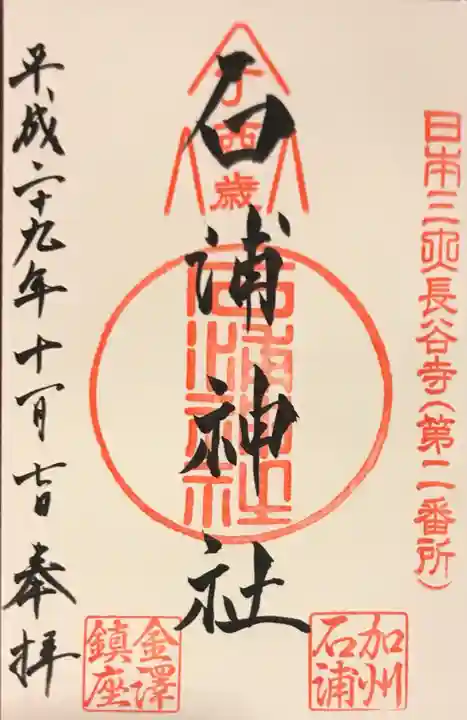 日本三大長谷寺(第二番所)
加州
石浦
丁酉歳
石浦神社
石浦神社
金澤
鎮座
平成二十九年十一月 奉拝